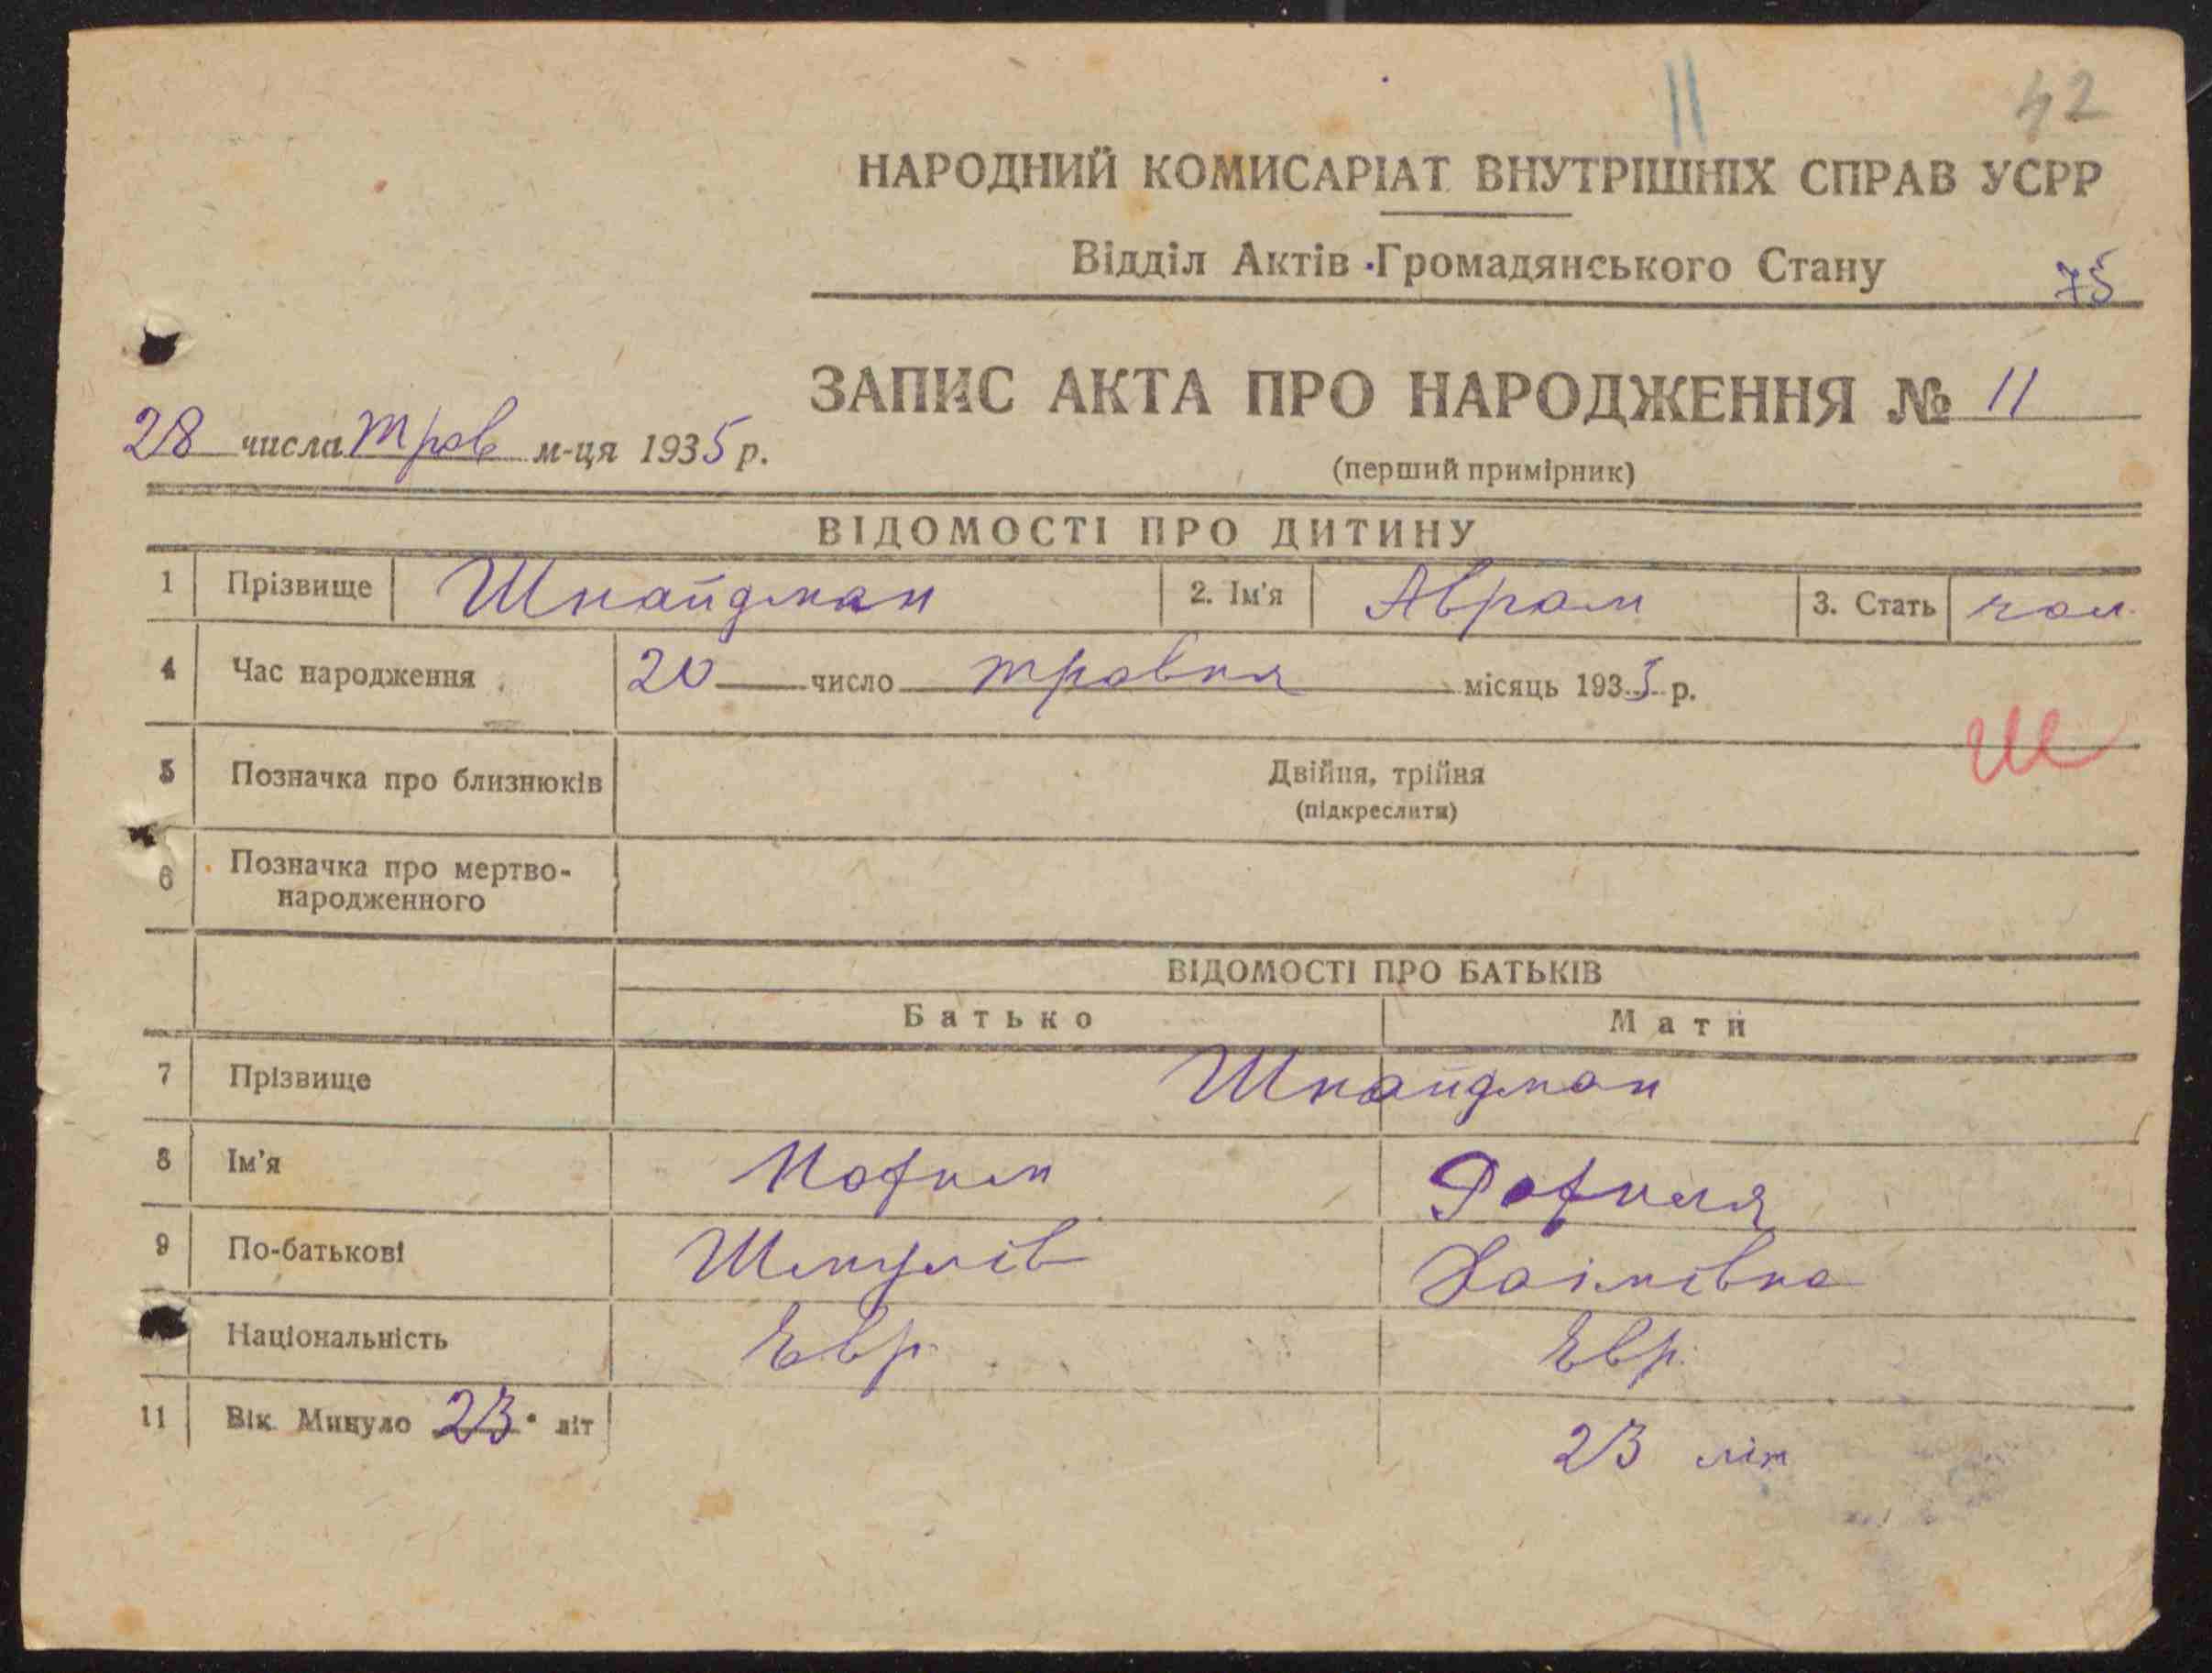 11 42
НАРОДНИЙ КОМИСАРІАТ ВНУТРІШНІХ СПРАВ УСРР
Відділ Актів Громадянського Стану
75
ЗАПИС АКТА ПРО НАРОДЖЕННЯ № 11
28 числа трав м-ця 1935 р.
(перший примірник)
ВІДОМОСТІ ПРО ДИТИНУ
1 Прізвище Шнайдман 2. Ім'я Аврам 3. Стать чол.
4 Час народження 20 число травня місяць 1935 р.
Ш
5 Позначка про близнюків Двійня, трійня
(підкреслити)
6 Позначка про мертво-
народженного
ВІДОМОСТІ ПРО БАТЬКІВ
Батько Мати
7 Прізвище Шнайдман
8 Ім'я Рофиля
9 По-батькові Шмулів Хаімівна
Національність Евр. Евр.
11 Вік. Минуло 23 літ 23 літ